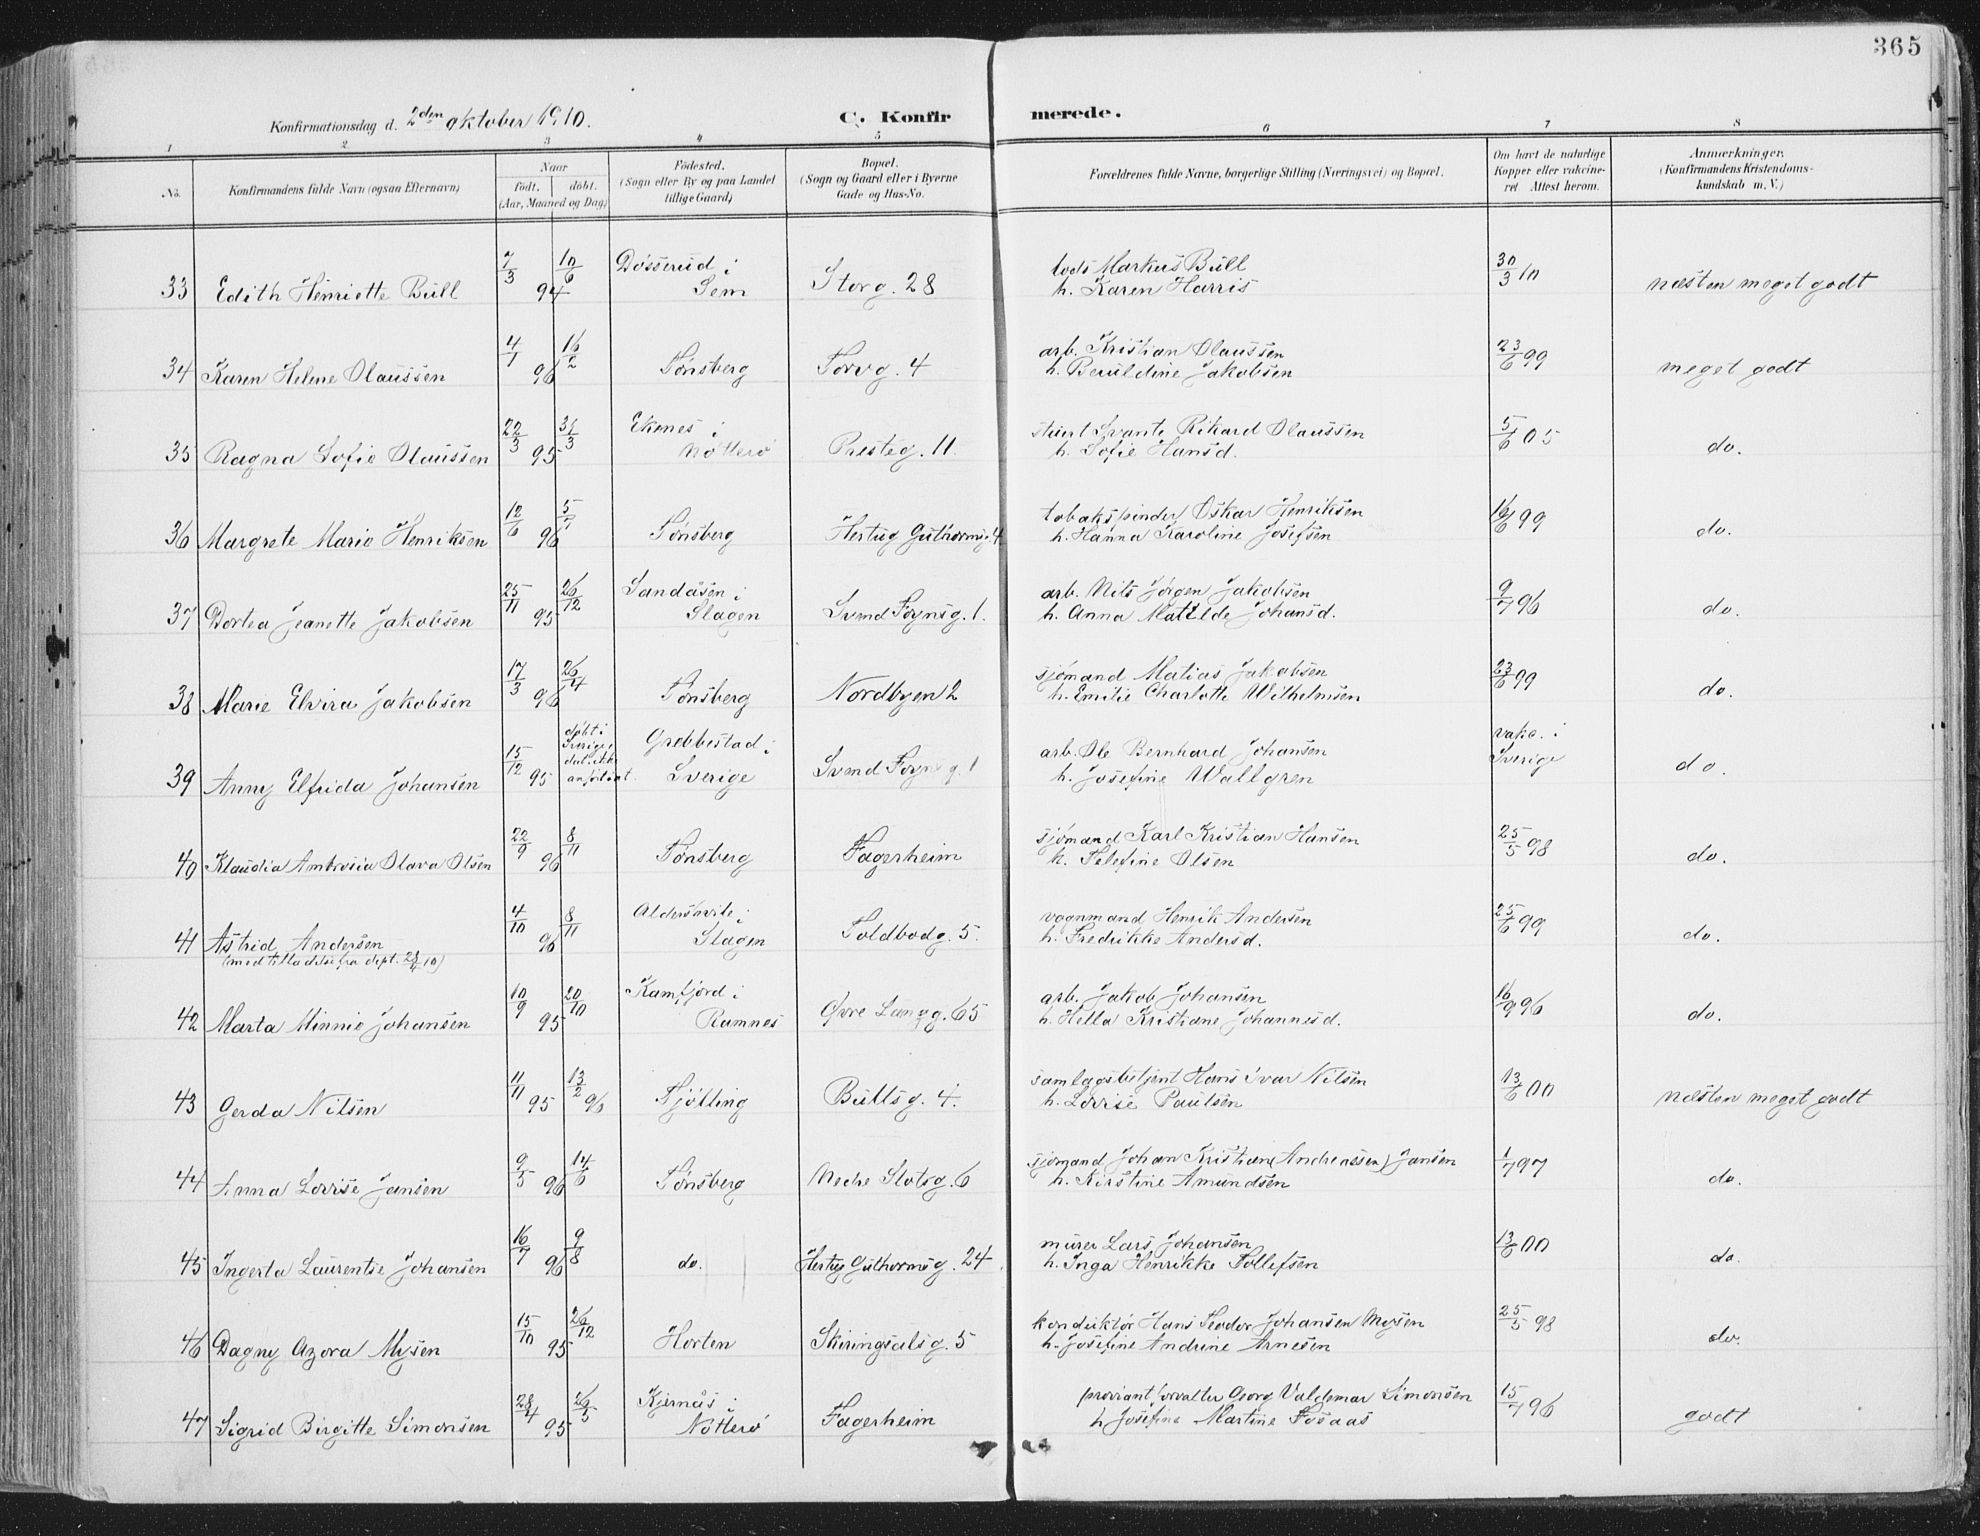 365
Konfirmationsdag d. 2den oktober 1910.
C. Konfirmerede.
1 2 3 4 5 6 7 8
No. | Konfirmandens fulde Navn (ogsaa Efternavn) | Naar født. døbt. (Aar, Maaned og Dag) | Fødested. (Sogn eller By og paa Landet tillige Gaard) | Bopæl. (Sogn og Gaard eller i Byerne Gade og Hus-No. | Forældrenes fulde Navne, borgerlige Stilling (Næringsvei) og Bopæl. | Om havt de naturlige Kopper eller vakcineret. Attest herom. | Anmærkninger. (Konfirmandens Kristendomskundskab m. V.)
33 Edith Henriette Bull 7/3 94 10/6 Døsserud i Sem Storg. 28 lods Markus Bull h. Karen Harris 30/3 10 næsten meget godt
34 Karen Helene Olaussen 4/1 96 16/2 Tønsberg Torvg. 4 arb. Kristian Olaussen h. Beruldine Jakobsen 23/6 99 meget godt
35 Ragna Sofie Olaussen 22/3 95 31/3 Ekenes i Nøtterø Presteg. 11. stuert Svante Rikard Olaussen h. Sofie Hansd. 5/6 05 do.
36 Margrete Marie Henriksen 12/6 96 5/7 Tønsberg Hertug Guthormsg. 4 tobakspinder Oskar Henriksen h. Hanna Karoline Josefsen 16/6 99 do.
37 Dortea Jeanette Jakobsen 25/11 95 26/12 Sandåsen i Slagen Svend Foynsg. 1. arb. Nils Jørgen Jakobsen h. Anna Matilde Johansd. 9/7 96 do.
38 Marie Elvira Jakobsen 17/3 96 26/4 Tønsberg Nordbyen 2 sjømand Matias Jakobsen h. Emilie Charlotte Wilhelmsen 23/6 99 do.
39 Anny Elfrida Johansen 15/12 95 døbt i Sverige, dat. ikke anført i att. Grebbestad i Sverige Svend Foyns g. 1 arb. Ole Bernhard Johansen h. Josefine Wallgren vakc. i Sverige do.
40 Klaudia Ambrosia Olava Olsen 22/9 96 8/11 Tønsberg Fagerheim sjømand Karl Kristian Hansen h. Telefine Olsen 25/5 98 do.
41 Astrid Andersen (med tilladelse fra dept. 10) 4/10 96 8/11 i Slagen Toldbodg. 5. vognmand Henrik Andersen h. Fredrikke Andersd. 25/6 99 do.
42 Marta Minnie Johansen 10/9 95 20/10 Kamfjord i Ramnes Øvre Langg. 65 arb. Jakob Johansen h. Hella Kristiane Johannesd. 16/9 96 do.
43 Gerda Nilsen 11/11 95 13/2 96 Tjølling Bullsg. 4. samlagsbetjent Hans Ivar Nilsen h. Lovise Paulsen 13/6 00 næsten meget godt
44 Anna Lovise Jansen 9/5 96 14/6 Tønsberg Nedre Slotsg. 6 sjømand Johan Kristian (Andreassen) Jansen h. Kirstine Amundsen 1/7 97 do.
45 Ingerta Laurentse Johansen 16/7 96 9/8 do. Hertug Guthormsg. 24 murer Lars Johansen h. Inga Henrikke Tollefsen 13/6 00 do.
46 Dagny Azora Mysen 15/10 95 26/12 Horten Skiringsalsg. 5 konduktør Hans Teodor Johansen Mysen h. Josefine Andrine Arnesen 25/5 98 do.
47 Sigrid Birgitte Simonsen 28/4 95 26/5 Kjernås i Nøtterø Fagerheim proviantforvalter Georg Valdemar Simonsen h Josefine Martine Fosaas 15/7 96 godt